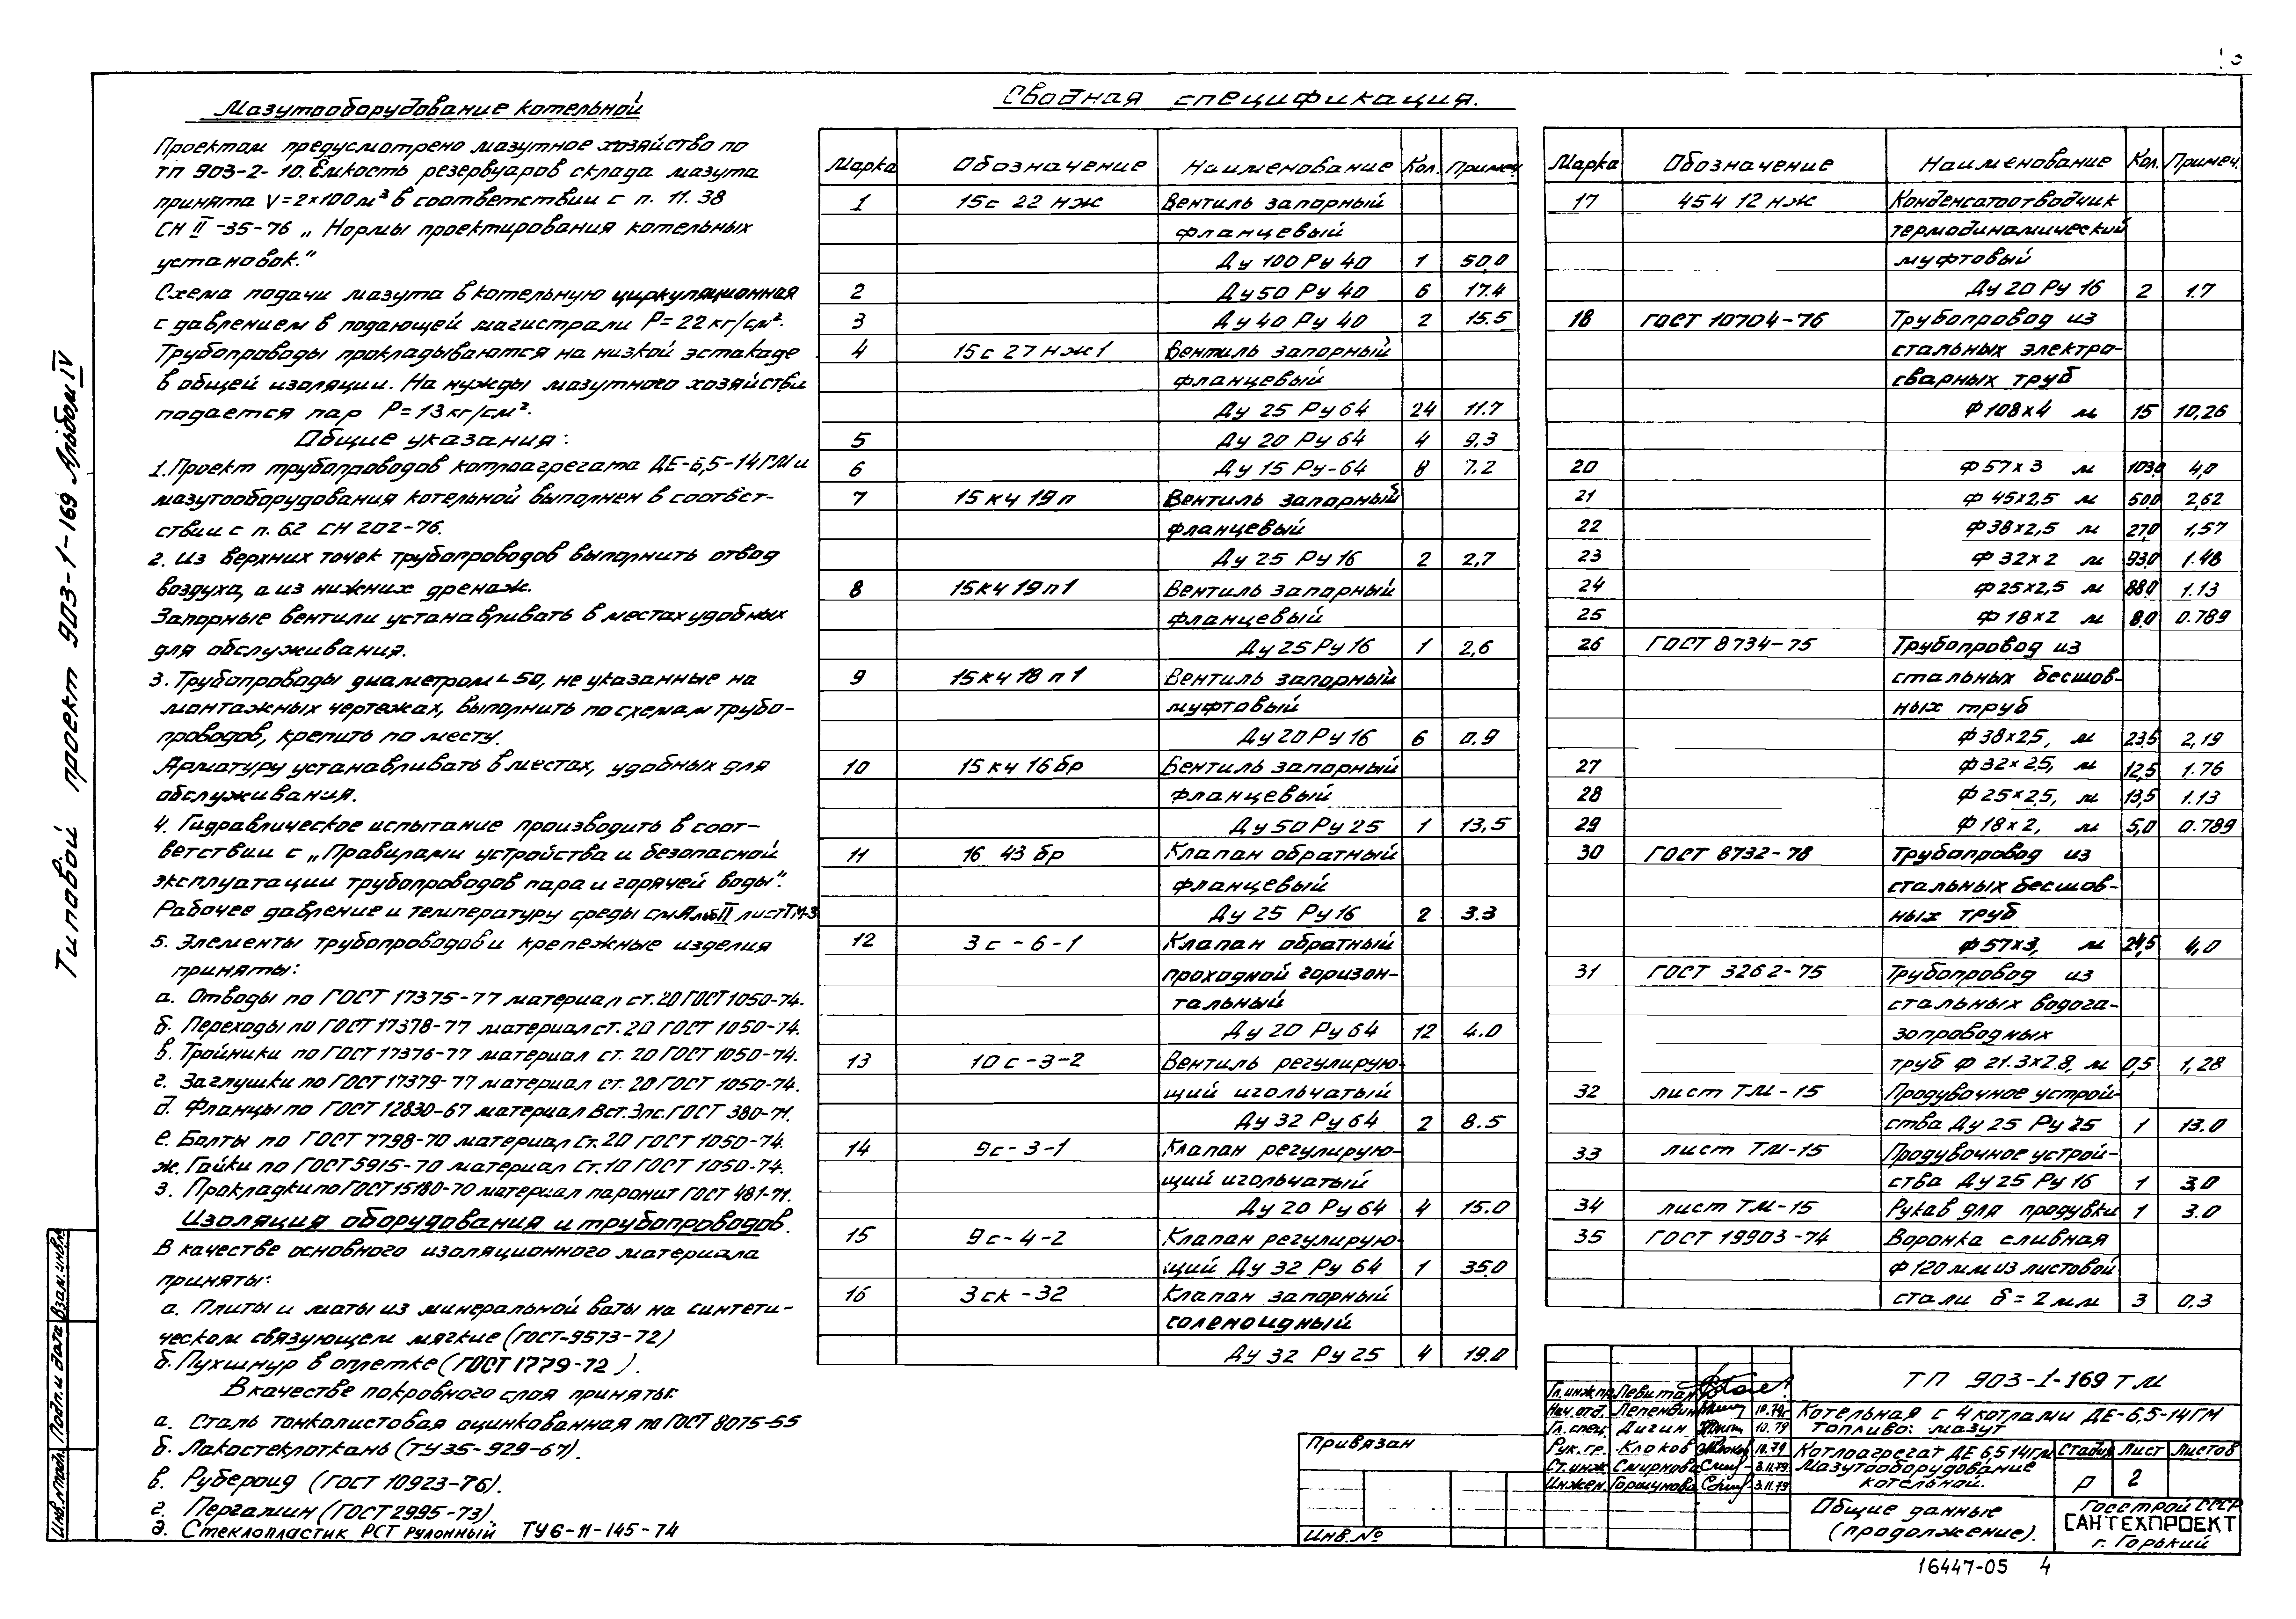 Типовой проект 903-1-169 Альбом IV
Мазутооборудование котельной
Проектом предусмотрено мазутное хозяйство по
ТП 903-2-10. Емкость резервуаров склада мазута
принята V=2×100м³ в соответствии с п. 11.38
СН II-35-76 „Нормы проектирования котельных
установок."
Схема подачи мазута в котельную циркуляционная
с давлением в подающей магистрали Р=22кг/см².
Трубопроводы прокладываются на низкой эстакаде
в общей изоляции. На нужды мазутного хозяйства
подается пар Р=13кг/см².
Общие указания:
1. Проект трубопроводов котлоагрегата ДЕ-6,5-14ГМ и
мазутооборудования котельной выполнен в соответ-
ствии с п. 6.2 СН 202-76.
2. Из верхних точек трубопроводов выполнить отвод
воздуха, а из нижних дренаж.
Запорные вентили устанавливать в местах удобных
для обслуживания.
3. Трубопроводы диаметром < 50, не указанные на
монтажных чертежах, выполнить по схемам трубо-
проводов, крепить по месту.
Арматуру устанавливать в местах, удобных для
обслуживания.
4. Гидравлическое испытание производить в соот-
ветствии с „Правилами устройства и безопасной
эксплуатации трубопроводов пара и горячей воды".
Рабочее давление и температуру среды см Альб II лист ТМ-3
5. Элементы трубопроводов и крепежные изделия
приняты:
а. Отводы по ГОСТ 17375-77 материал ст.20 ГОСТ 1050-74.
б. Переходы по ГОСТ 17378-77 материал ст. 20 ГОСТ 1050-74.
в. Тройники по ГОСТ 17376-77 материал ст. 20 ГОСТ 1050-74.
г. Заглушки по ГОСТ 17379-77 материал ст. 20 ГОСТ 1050-74.
д. Фланцы по ГОСТ 12830-67 материал Вст.3пс. ГОСТ 380-71.
е. Болты по ГОСТ 7798-70 материал Ст.20 ГОСТ 1050-74.
ж. Гайки по ГОСТ 5915-70 материал Ст.10 ГОСТ 1050-74.
з. Прокладки по ГОСТ 15180-70 материал паронит ГОСТ 481-71.
Изоляция оборудования и трубопроводов.
В качестве основного изоляционного материала
приняты:
а. Плиты и маты из минеральной ваты на синтети-
ческом связующем мягкие (ГОСТ-9573-72)
б. Пухшнур в оплетке (ГОСТ 1779-72).
В качестве покровного слоя приняты:
а. Сталь тонколистовая оцинкованная по ГОСТ 8075-55
б. Лакостеклоткань (ТУ35-929-67).
в. Рубероид (ГОСТ 10923-76).
г. Пергамин (ГОСТ 2995-73).
д. Стеклопластик РСТ рулонный ТУ6-11-145-74
Сводная спецификация.
Марка Обозначение Наименование Кол. Примеч.
1 15с 22 нж Вентиль запорный
фланцевый
Ду 100 Ру 40 1 50,0
2 Ду 50 Ру 40 6 17.4
3 Ду 40 Ру 40 2 15.5
4 15с 27 нж1 Вентиль запорный
фланцевый
Ду 25 Ру 64 24 11.7
5 Ду 20 Ру 64 4 9,3
6 Ду 15 Ру-64 8 7.2
7 15кч 19п Вентиль запорный
фланцевый
Ду 25 Ру 16 2 2,7
8 15кч 19п1 Вентиль запорный
фланцевый
Ду 25 Ру 16 1 2,6
9 15кч 18п1 Вентиль запорный
муфтовый
Ду 20 Ру 16 6 0.9
10 15кч 16бр Вентиль запорный
фланцевый
Ду 50 Ру 25 1 13,5
11 16 43 бр Клапан обратный
фланцевый
Ду 25 Ру 16 2 3.3
12 3с-6-1 Клапан обратный
проходной горизон-
тальный
Ду 20 Ру 64 12 4.0
13 10с-3-2 Вентиль регулирую-
щий игольчатый
Ду 32 Ру 64 2 8.5
14 9с-3-1 Клапан регулирую-
щий игольчатый
Ду 20 Ру 64 4 15.0
15 9с-4-2 Клапан регулирую-
щий Ду 32 Ру 64 1 35.0
16 3ск-32 Клапан запорный
соленоидный
Ду 32 Ру 25 4 19.0
Марка Обозначение Наименование Кол. Примеч.
17 454 12 нж Конденсатоотводчик
термодинамический
муфтовый
Ду 20 Ру 16 2 1.7
18 ГОСТ 10704-76 Трубопровод из
стальных электро-
сварных труб
Ф 108×4 м 15 10,26
20 Ф 57×3 м 103,0 4,0
21 Ф 45×2,5 м 50,0 2,62
22 Ф 38×2,5 м 27,0 1,57
23 Ф 32×2 м 93,0 1.48
24 Ф 25×2,5 м 88,0 1.13
25 Ф 18×2 м 8,0 0.789
26 ГОСТ 8734-75 Трубопровод из
стальных бесшов-
ных труб
Ф 38×2,5, м 23,5 2,19
27 Ф 32×2,5, м 12,5 1.76
28 Ф 25×2,5, м 13,5 1.13
29 Ф 18×2, м 5,0 0.789
30 ГОСТ 8732-78 Трубопровод из
стальных бесшов-
ных труб
Ф 57×3, м 24,5 4,0
31 ГОСТ 3262-75 Трубопровод из
стальных водога-
зопроводных
труб Ф 21.3×2.8, м 0,5 1,28
32 лист ТМ-15 Продувочное устрой-
ства Ду 25 Ру 25 1 13.0
33 лист ТМ-15 Продувочное устрой-
ства Ду 25 Ру 16 1 3,0
34 лист ТМ-15 Рукав для продувки 1 3.0
35 ГОСТ 19903-74 Воронка сливная
Ф 120 мм из листовой
стали δ=2мм 3 0.3
Привязан
Инв.№
Гл.инж.пр. Левитан
Нач.отд. 10.79г
Гл.спец. Дигин 10.79
Рук.гр. Клоков 10.79
Ст.инж. Смирнова 3.11.79
Инжен. Горшунова 3.11.79
ТП 903-1-169 ТМ
Котельная с 4 котлами ДЕ-6,5-14ГМ
Топливо: мазут
Котлоагрегат ДЕ 6,5 14ГМ
Мазутооборудование
котельной.
Стадия Лист Листов
Р 2
Общие данные
(продолжение).
Госстрой СССР
САНТЕХПРОЕКТ
г. Горький
16447-05 4
Инв.№подл. Подп. и дата Взам.инв.№